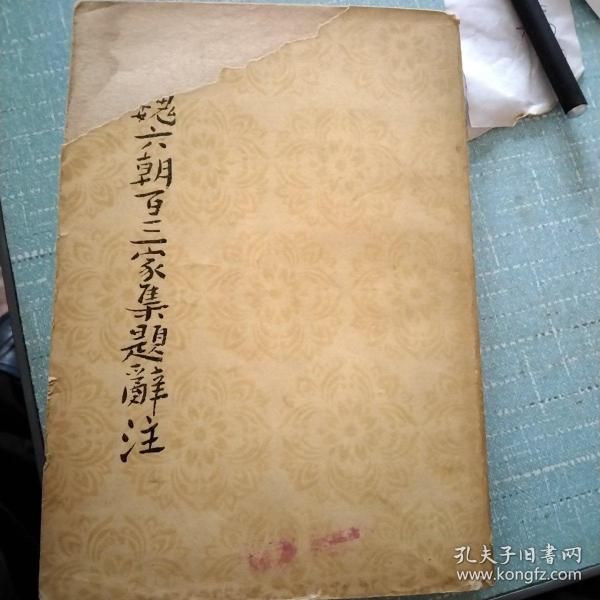 魏六朝百三家集題辭注
孔夫子旧書网
www.kongfz.com